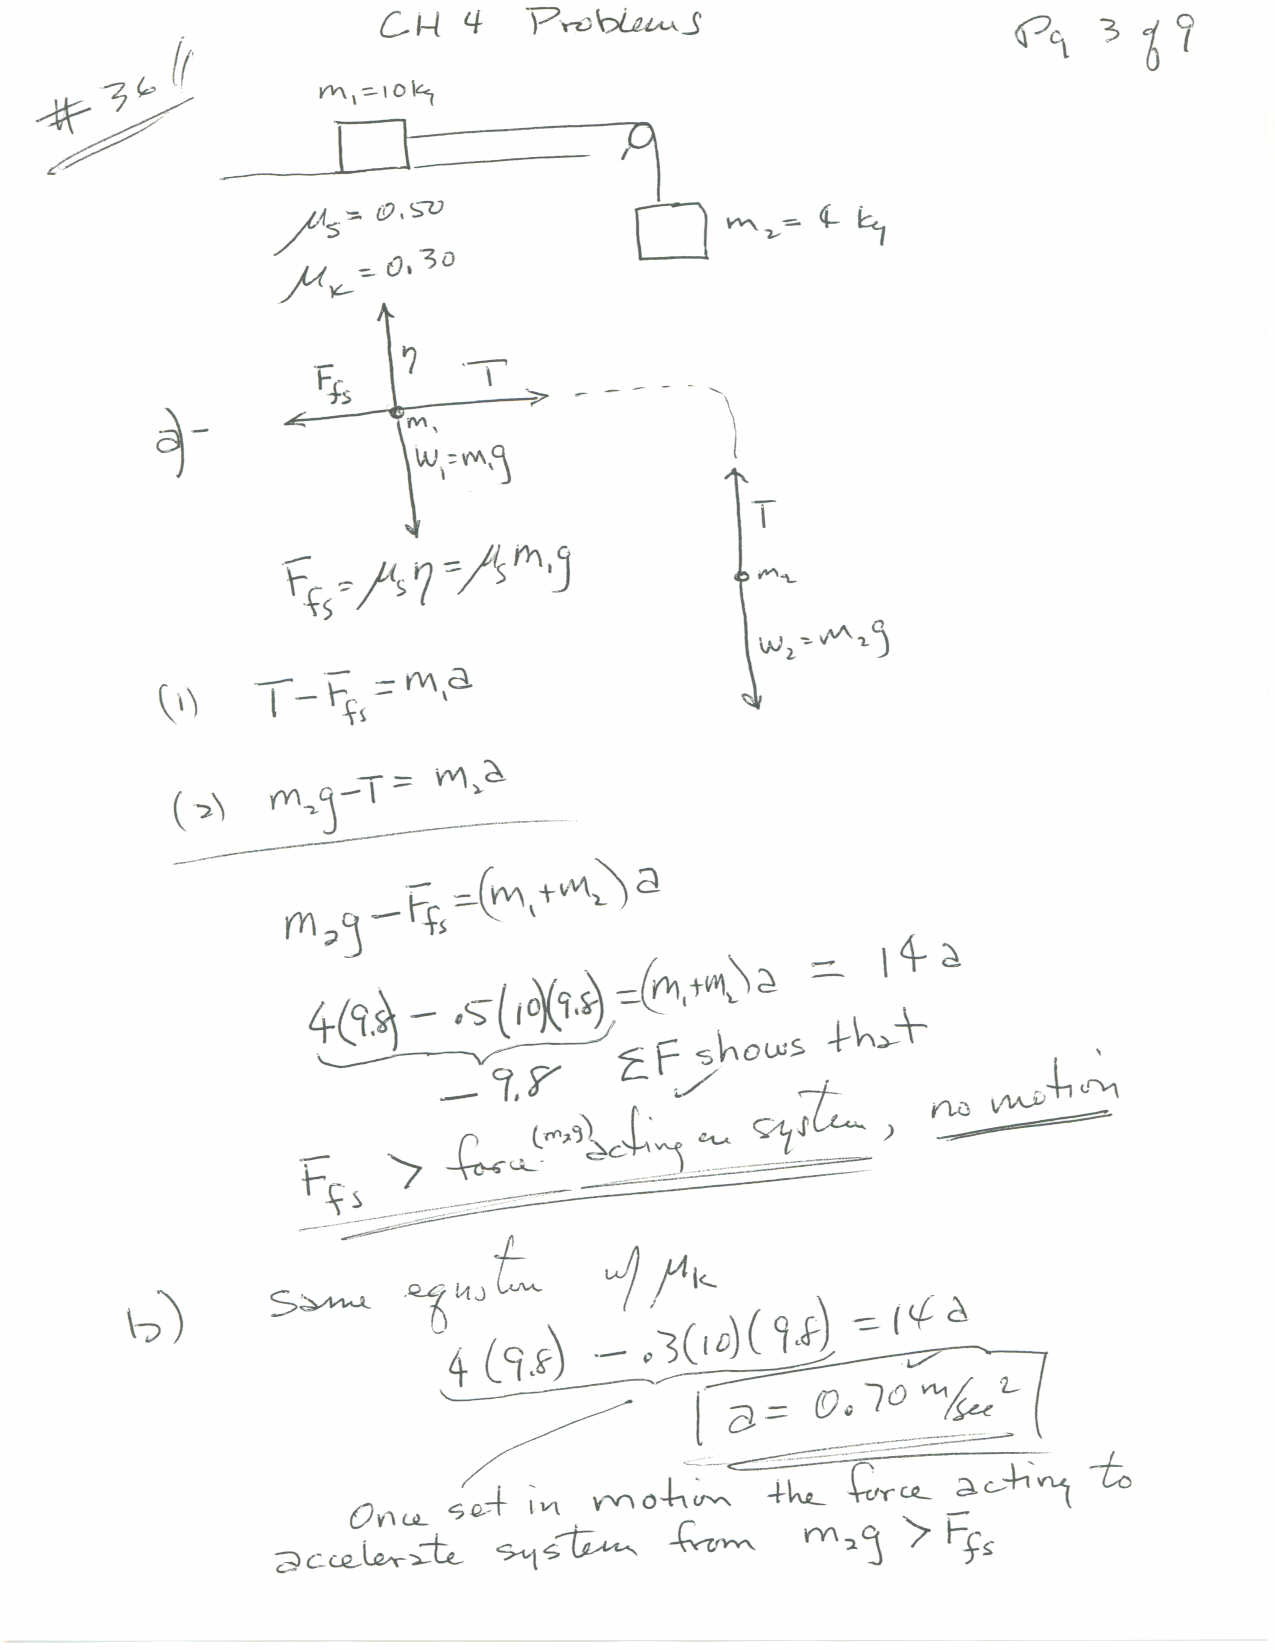 CH 4 Problems
Pg 3 of 9
# 36
m₁=10kg
μs = 0.50
m₂ = 4 kg
μk = 0.30
a)-
Ffs
η
T
m₁
W₁=m₁g
T
m₂
W₂=m₂g
Ffs = μsη = μsm₁g
(1) T-Ffs = m₁a
(2) m₂g-T = m₂a
m₂g - Ffs = (m₁+m₂)a
4(9.8) - .5(10)(9.8) = (m₁+m₂)a = 14a
-9.8 ΣF shows that
Ffs > force (m₂g) acting on system, no motion
b) Same equation w/ μk
4(9.8) - .3(10)(9.8) = 14a
a = 0.70 m/sec²
Once set in motion the force acting to
accelerate system from m₂g > Ffs